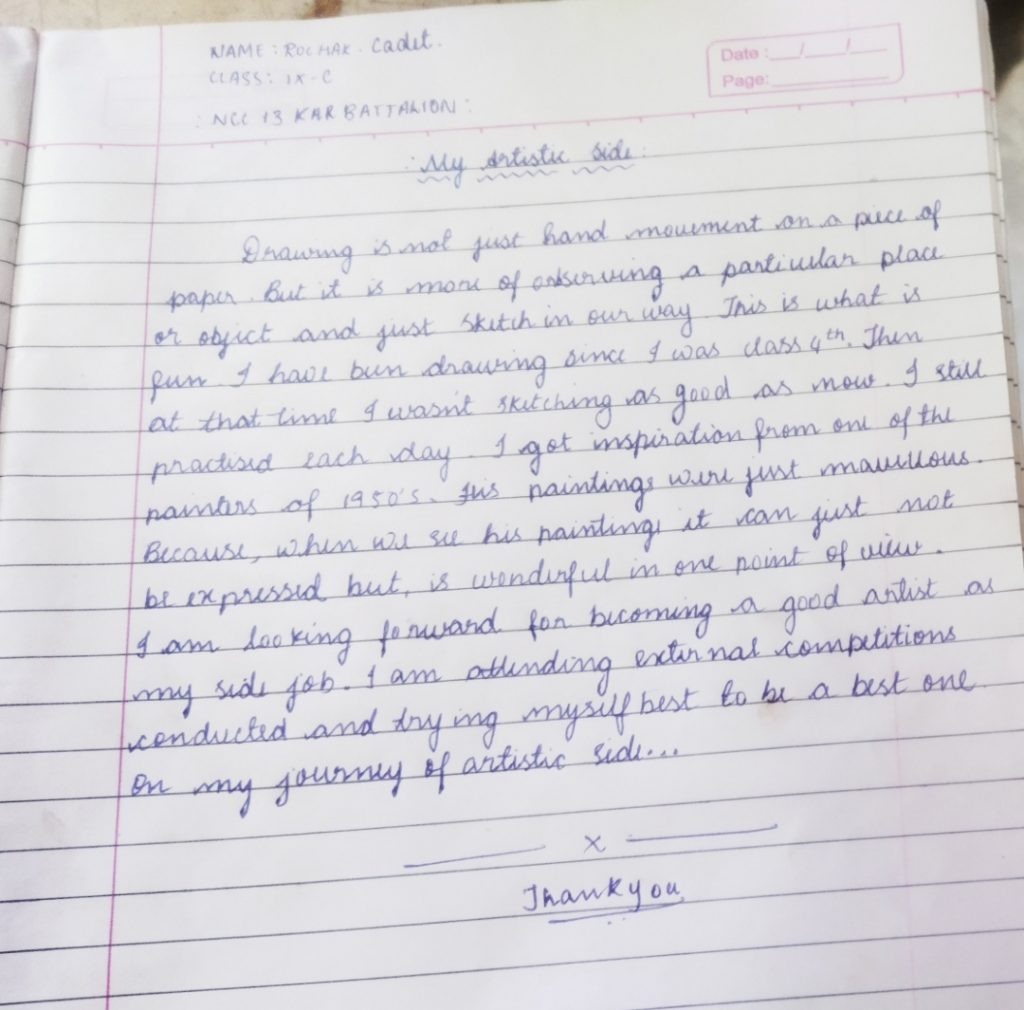 NAME : ROCHAK . Cadet.
CLASS : IX - C
: NCC 13 KAR BATTALION :
Date : __/__/__
Page: ______
: My artistic side :
Drawing is not just hand movement on a piece of
paper. But it is more of observing a particular place
or object and just sketch in our way. This is what is
fun. I have been drawing since I was class 4th. Then
at that time I wasn't sketching as good as now. I still
practised each day. I got inspiration from one of the
painters of 1950's. His paintings were just marvellous.
Because, when we see his paintings it can just not
be expressed but, is wonderful in one point of view.
I am looking forward for becoming a good artist as
my side job. I am attending external competitions
conducted and trying myself best to be a best one
on my journey of artistic side...
x
Thank you